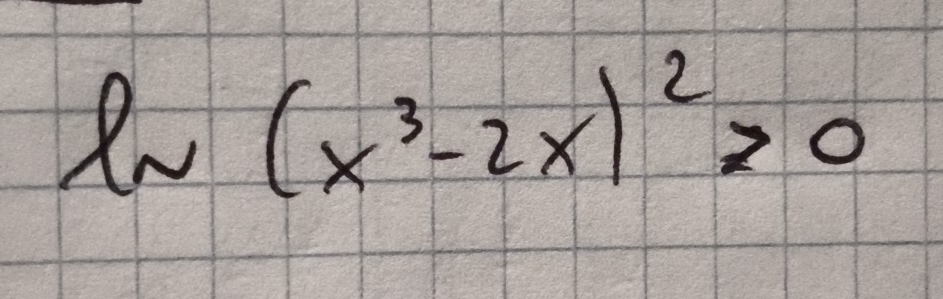 ln (x³-2x)² ≥ 0